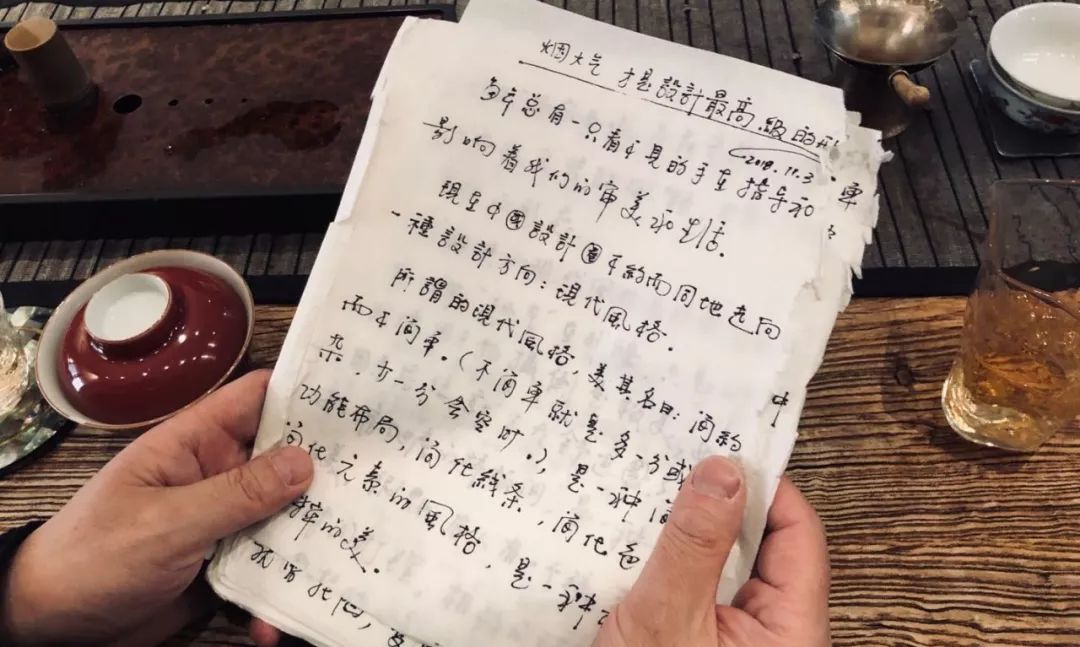 烟火气 才是設計最高級的
2018.11.3
多年总有一只看不見的手在指导和
影响着我们的审美和生活.
現在中國設計 不約而同地走向
一種設計方向：現代風格.
所謂的現代風格,美其名曰：简约
而不简单.(不简单就是多一分或
杂,少一分会空时.),是一种简
功能布局,简化线条,简化色
简化元素的風格,是一种
粹的美.